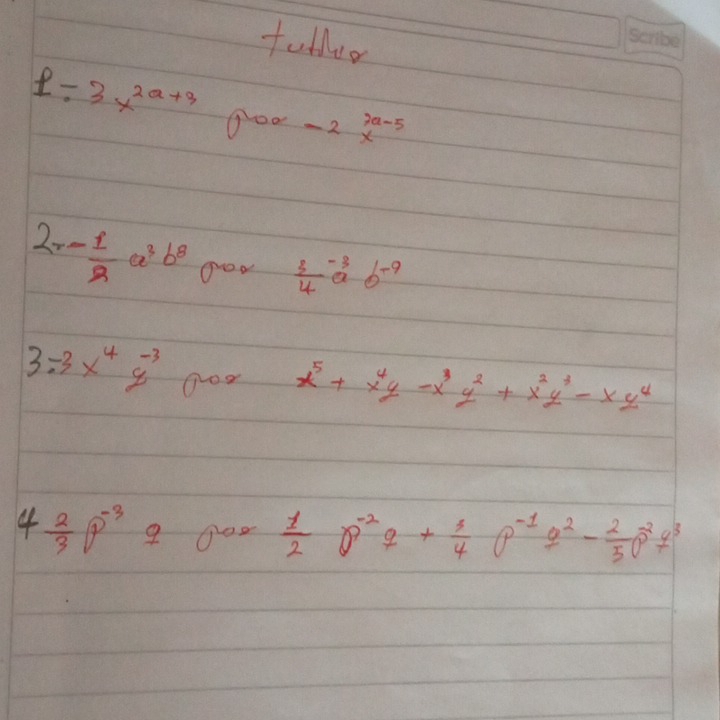 Scribe
1- 3x^{2a+3} por -2x^{3a-5}
2- -1/2 a³b⁸ por 3/4 a⁻³ b⁻⁹
3- 3x⁴y⁻³ por x⁵ + x⁴y - x³y² + x²y³ - xy⁴
4 2/3 p⁻³ q por 1/2 p⁻²q + 3/4 p⁻¹q² - 2/5 p⁻²q³